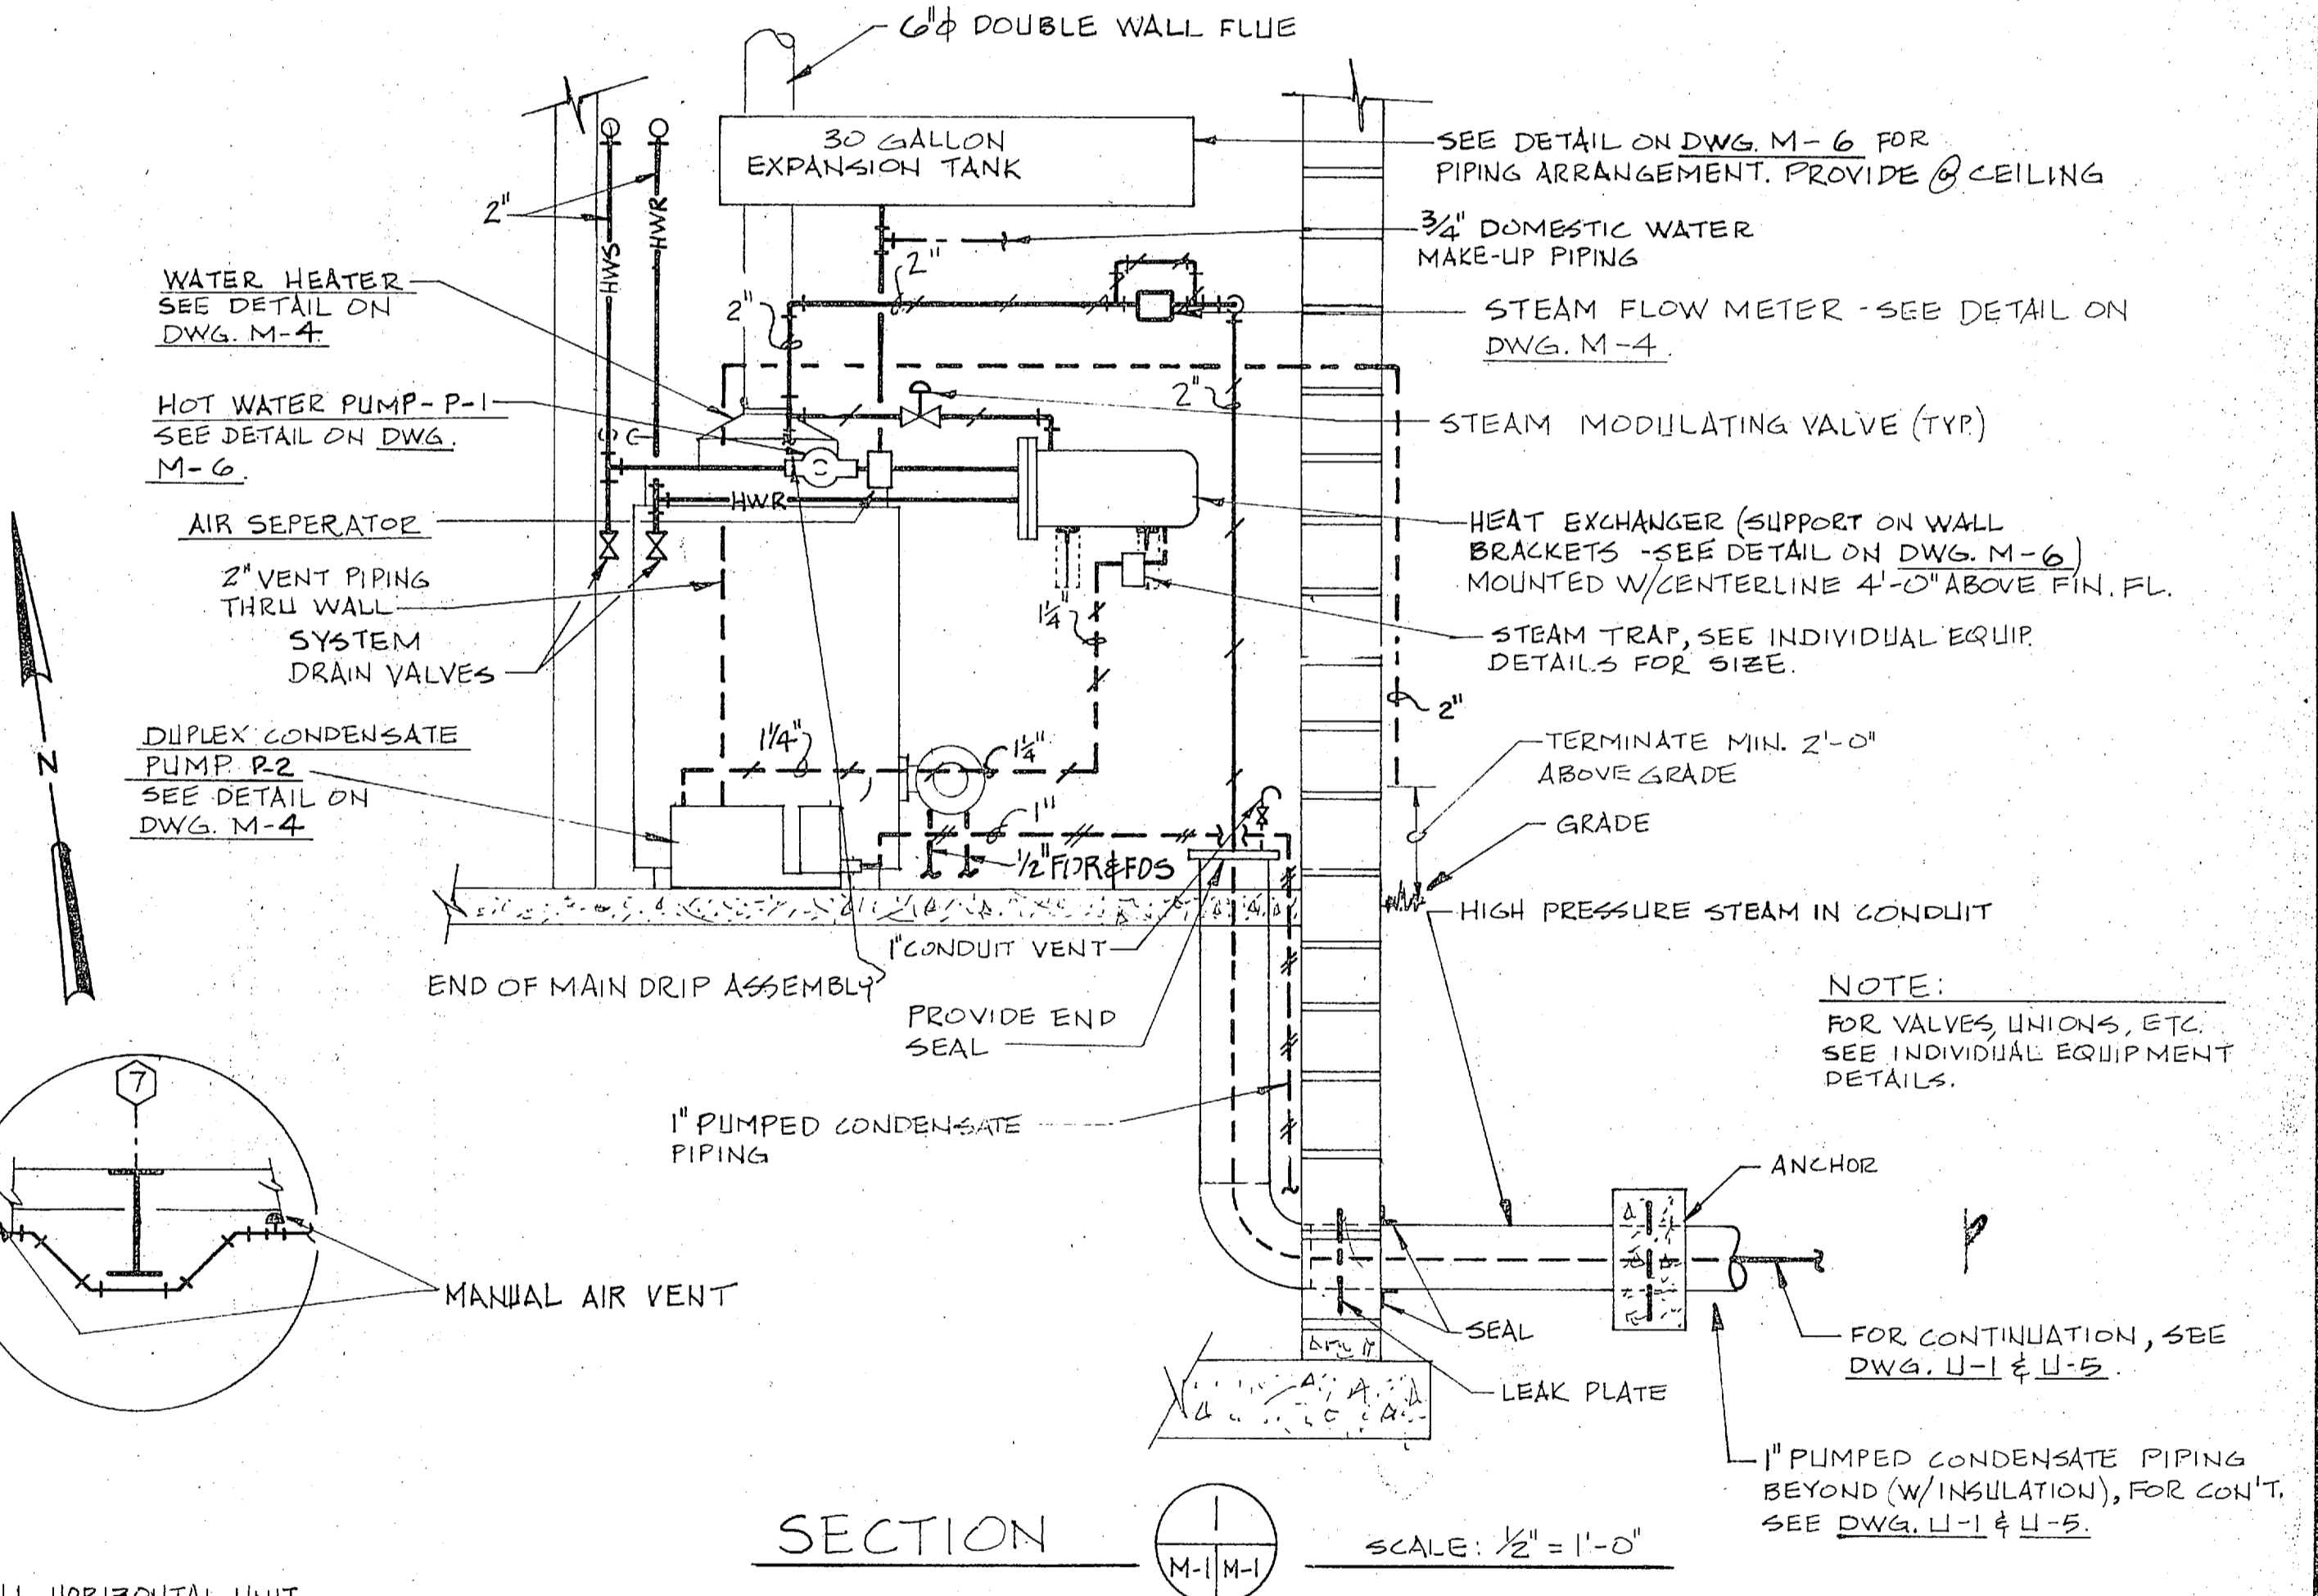 6"ϕ DOUBLE WALL FLUE
30 GALLON
EXPANSION TANK
SEE DETAIL ON DWG. M-6 FOR
PIPING ARRANGEMENT. PROVIDE @ CEILING
2"
HWS
HWR
3/4" DOMESTIC WATER
MAKE-UP PIPING
2"
2"
WATER HEATER
SEE DETAIL ON
DWG. M-4
STEAM FLOW METER - SEE DETAIL ON
DWG. M-4
2"
HOT WATER PUMP - P-1
SEE DETAIL ON DWG.
M-6
STEAM MODULATING VALVE (TYP.)
HWR
AIR SEPERATOR
HEAT EXCHANGER (SUPPORT ON WALL
BRACKETS - SEE DETAIL ON DWG. M-6)
MOUNTED W/CENTERLINE 4'-0" ABOVE FIN. FL.
2" VENT PIPING
THRU WALL
1 1/4"
STEAM TRAP, SEE INDIVIDUAL EQUIP.
DETAILS FOR SIZE.
SYSTEM
DRAIN VALVES
2"
N
DUPLEX CONDENSATE
PUMP P-2
SEE DETAIL ON
DWG. M-4
1 1/4"
1 1/4"
TERMINATE MIN. 2'-0"
ABOVE GRADE
1"
GRADE
1/2" FOR & FOS
HIGH PRESSURE STEAM IN CONDUIT
1" CONDUIT VENT
END OF MAIN DRIP ASSEMBLY
PROVIDE END
SEAL
NOTE:
FOR VALVES, UNIONS, ETC.
SEE INDIVIDUAL EQUIPMENT
DETAILS.
7
1" PUMPED CONDENSATE
PIPING
ANCHOR
MANUAL AIR VENT
SEAL
FOR CONTINUATION, SEE
DWG. U-1 & U-5.
LEAK PLATE
1" PUMPED CONDENSATE PIPING
BEYOND (W/INSULATION), FOR CON'T.
SEE DWG. U-1 & U-5.
SECTION
1
M-1 M-1
SCALE: 1/2" = 1'-0"
HORIZONTAL UNIT